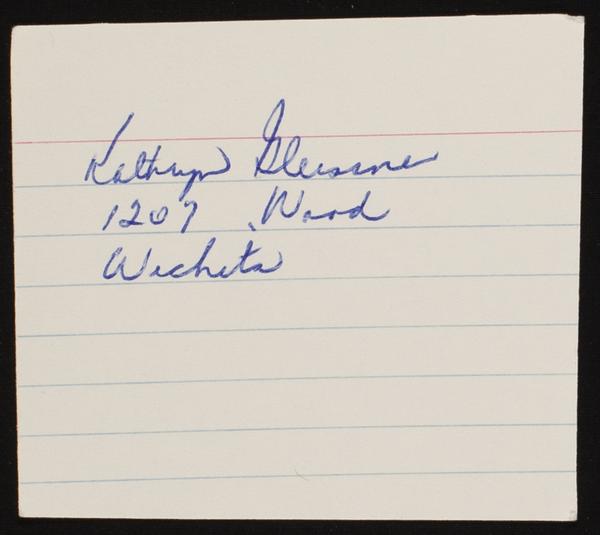 Kathryn Gleissner
1207 Wood
Wichita